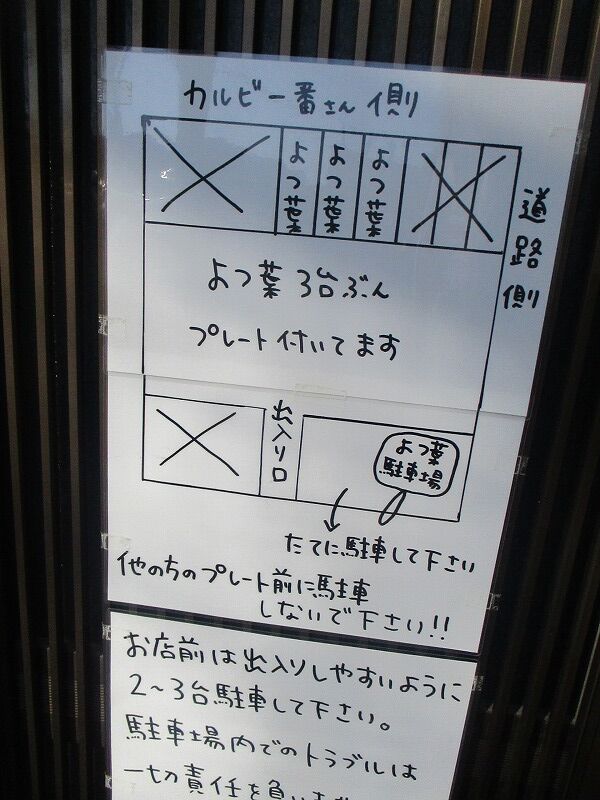 カルビー番さん側
よつ葉
よつ葉
よつ葉
道路側
よつ葉 3台ぶん
プレート付いてます
出入り口
よつ葉
駐車場
たてに駐車して下さい
他の方のプレート前に駐車
しないで下さい!!
お店前は出入りしやすいように
2~3台駐車して下さい。
駐車場内でのトラブルは
一切責任を負い